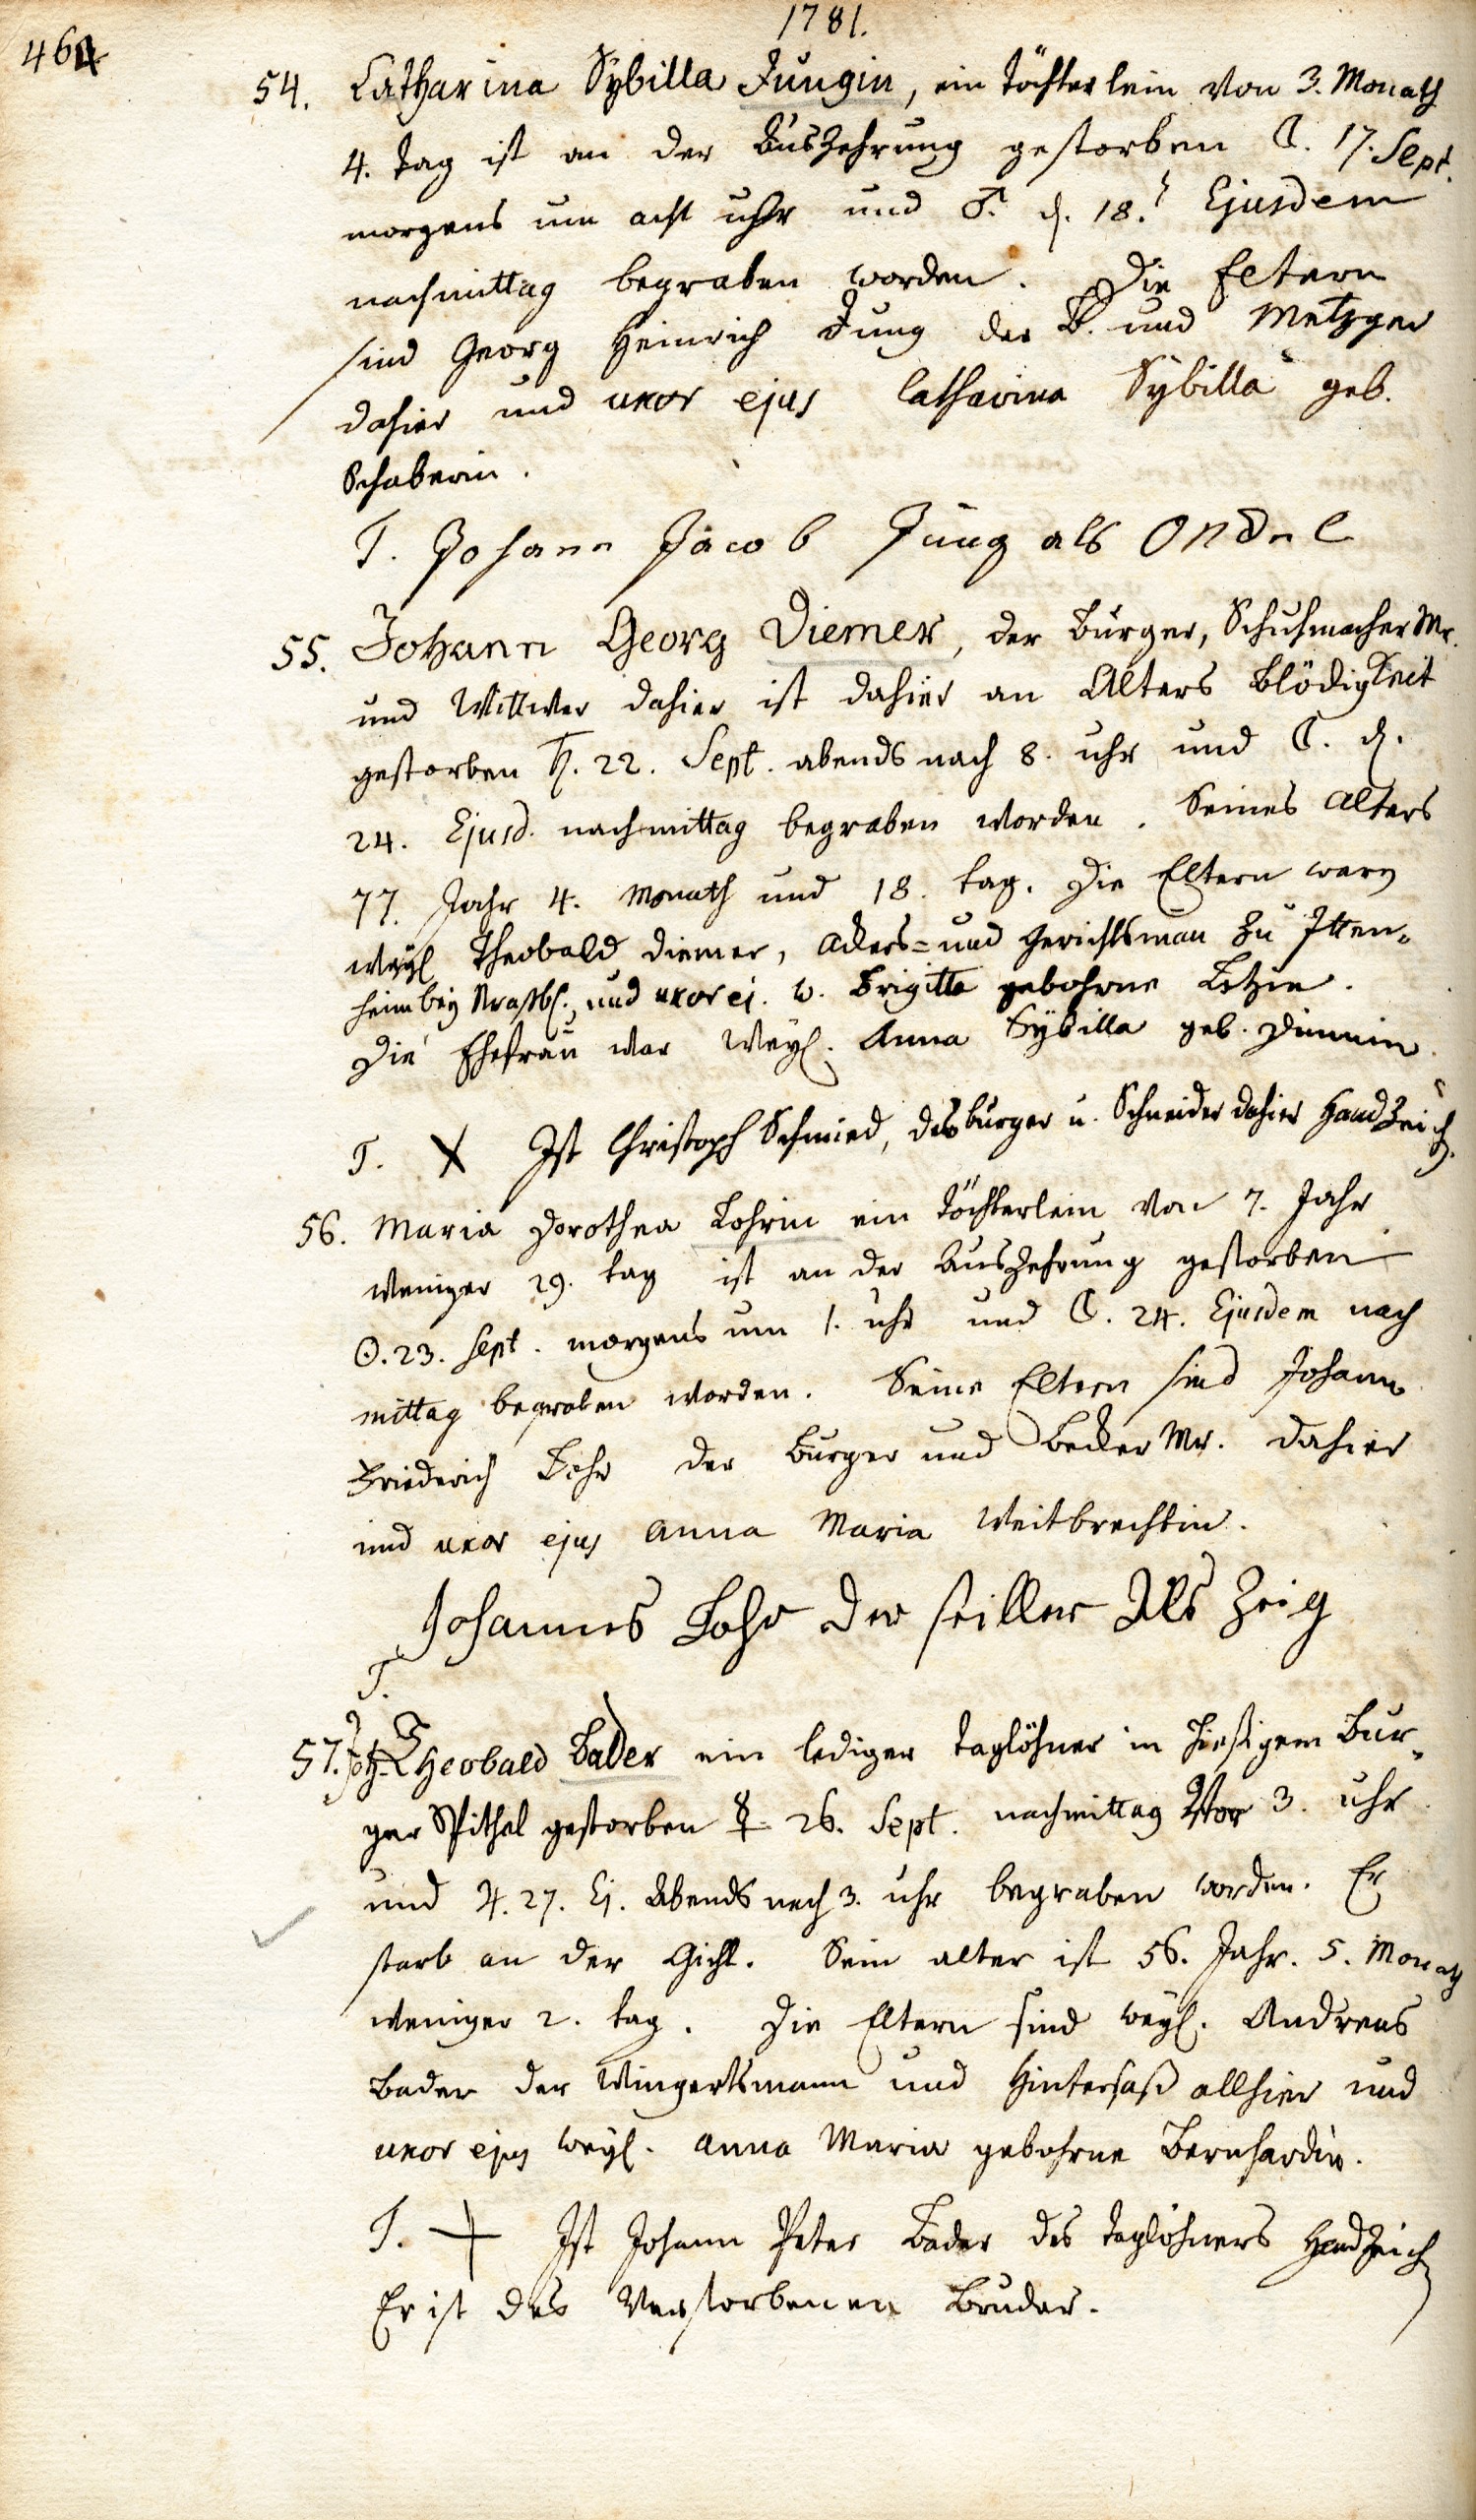 1781.
464
54. Catharina Sybilla Jungin, ein Töchterlein von 3. Monath
4. Tag ist an der Auszehrung gestorben ☾. 17. Sept.
morgens um acht uhr und ♂. d. 18.t Ejusdem
nachmittag begraben worden. Die Eltern
sind Georg Heinrich Jung der B. und Metzger
dahier und uxor ejus Catharina Sybilla geb.
Schaberin.
T. Johann Jacob Jung als Onckel
55. Johann Georg Diemer, der Burger, Schuhmacher Mr.
und Wittwer dahier ist dahier an Alters Blödigkeit
gestorben ♄. 22. Sept. abends nach 8. uhr und ☾. d.
24. Ejusd. nachmittag begraben worden. Seines Alters
77. Jahr 4. Monath und 18. tag. Die Eltern warn
weyl Theobald Diemer, Ackers= und Gerichtsman zu Itten-
heim bey Strassb., und uxor ej. w. Brigitta gebohrne
Die Ehefrau war weyl. Anna Sybilla geb.
T. X Ist Christoph Schmied, des burger u. Schneider dahier Handzeich.
56. Maria Dorothea Lohrin ein Töchterlein von 7. Jahr
weniger 29. tag ist an der Auszehrung gestorben
☉. 23. Sept. morgens um 1. uhr und ☾. 24. Ejusdem nach
mittag begraben worden. Seine Eltern sind Johann
Friederich Lohr der Burger und Becker Mr. dahier
und uxor ejus Anna Maria Weitbrechtin.
Johannes Lohr der seiller Als Zeig
T.
57. Joh. Theobald Bader ein lediger Taglöhner in hiesigem Bur-
ger Spithel gestorben ☿ 26. Sept. nachmittag Vor 3. uhr
und ♃. 27. Ej. Abends nach 3. uhr begraben worden. Er
starb an der Gicht. Sein alter ist 56. Jahr. 5. Monath
weniger 2. tag. Die Eltern sind weyl. Andreas
Bader der Wingertsmann und Hintersaß allhier und
uxor ejus weyl. Anna Maria gebohrne Bernhardin.
T. + Ist Johann Peter Bader des Taglöhners Handzeich
Er ist des Verstorbenen Bruder.